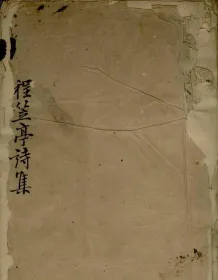 程笠亭詩集